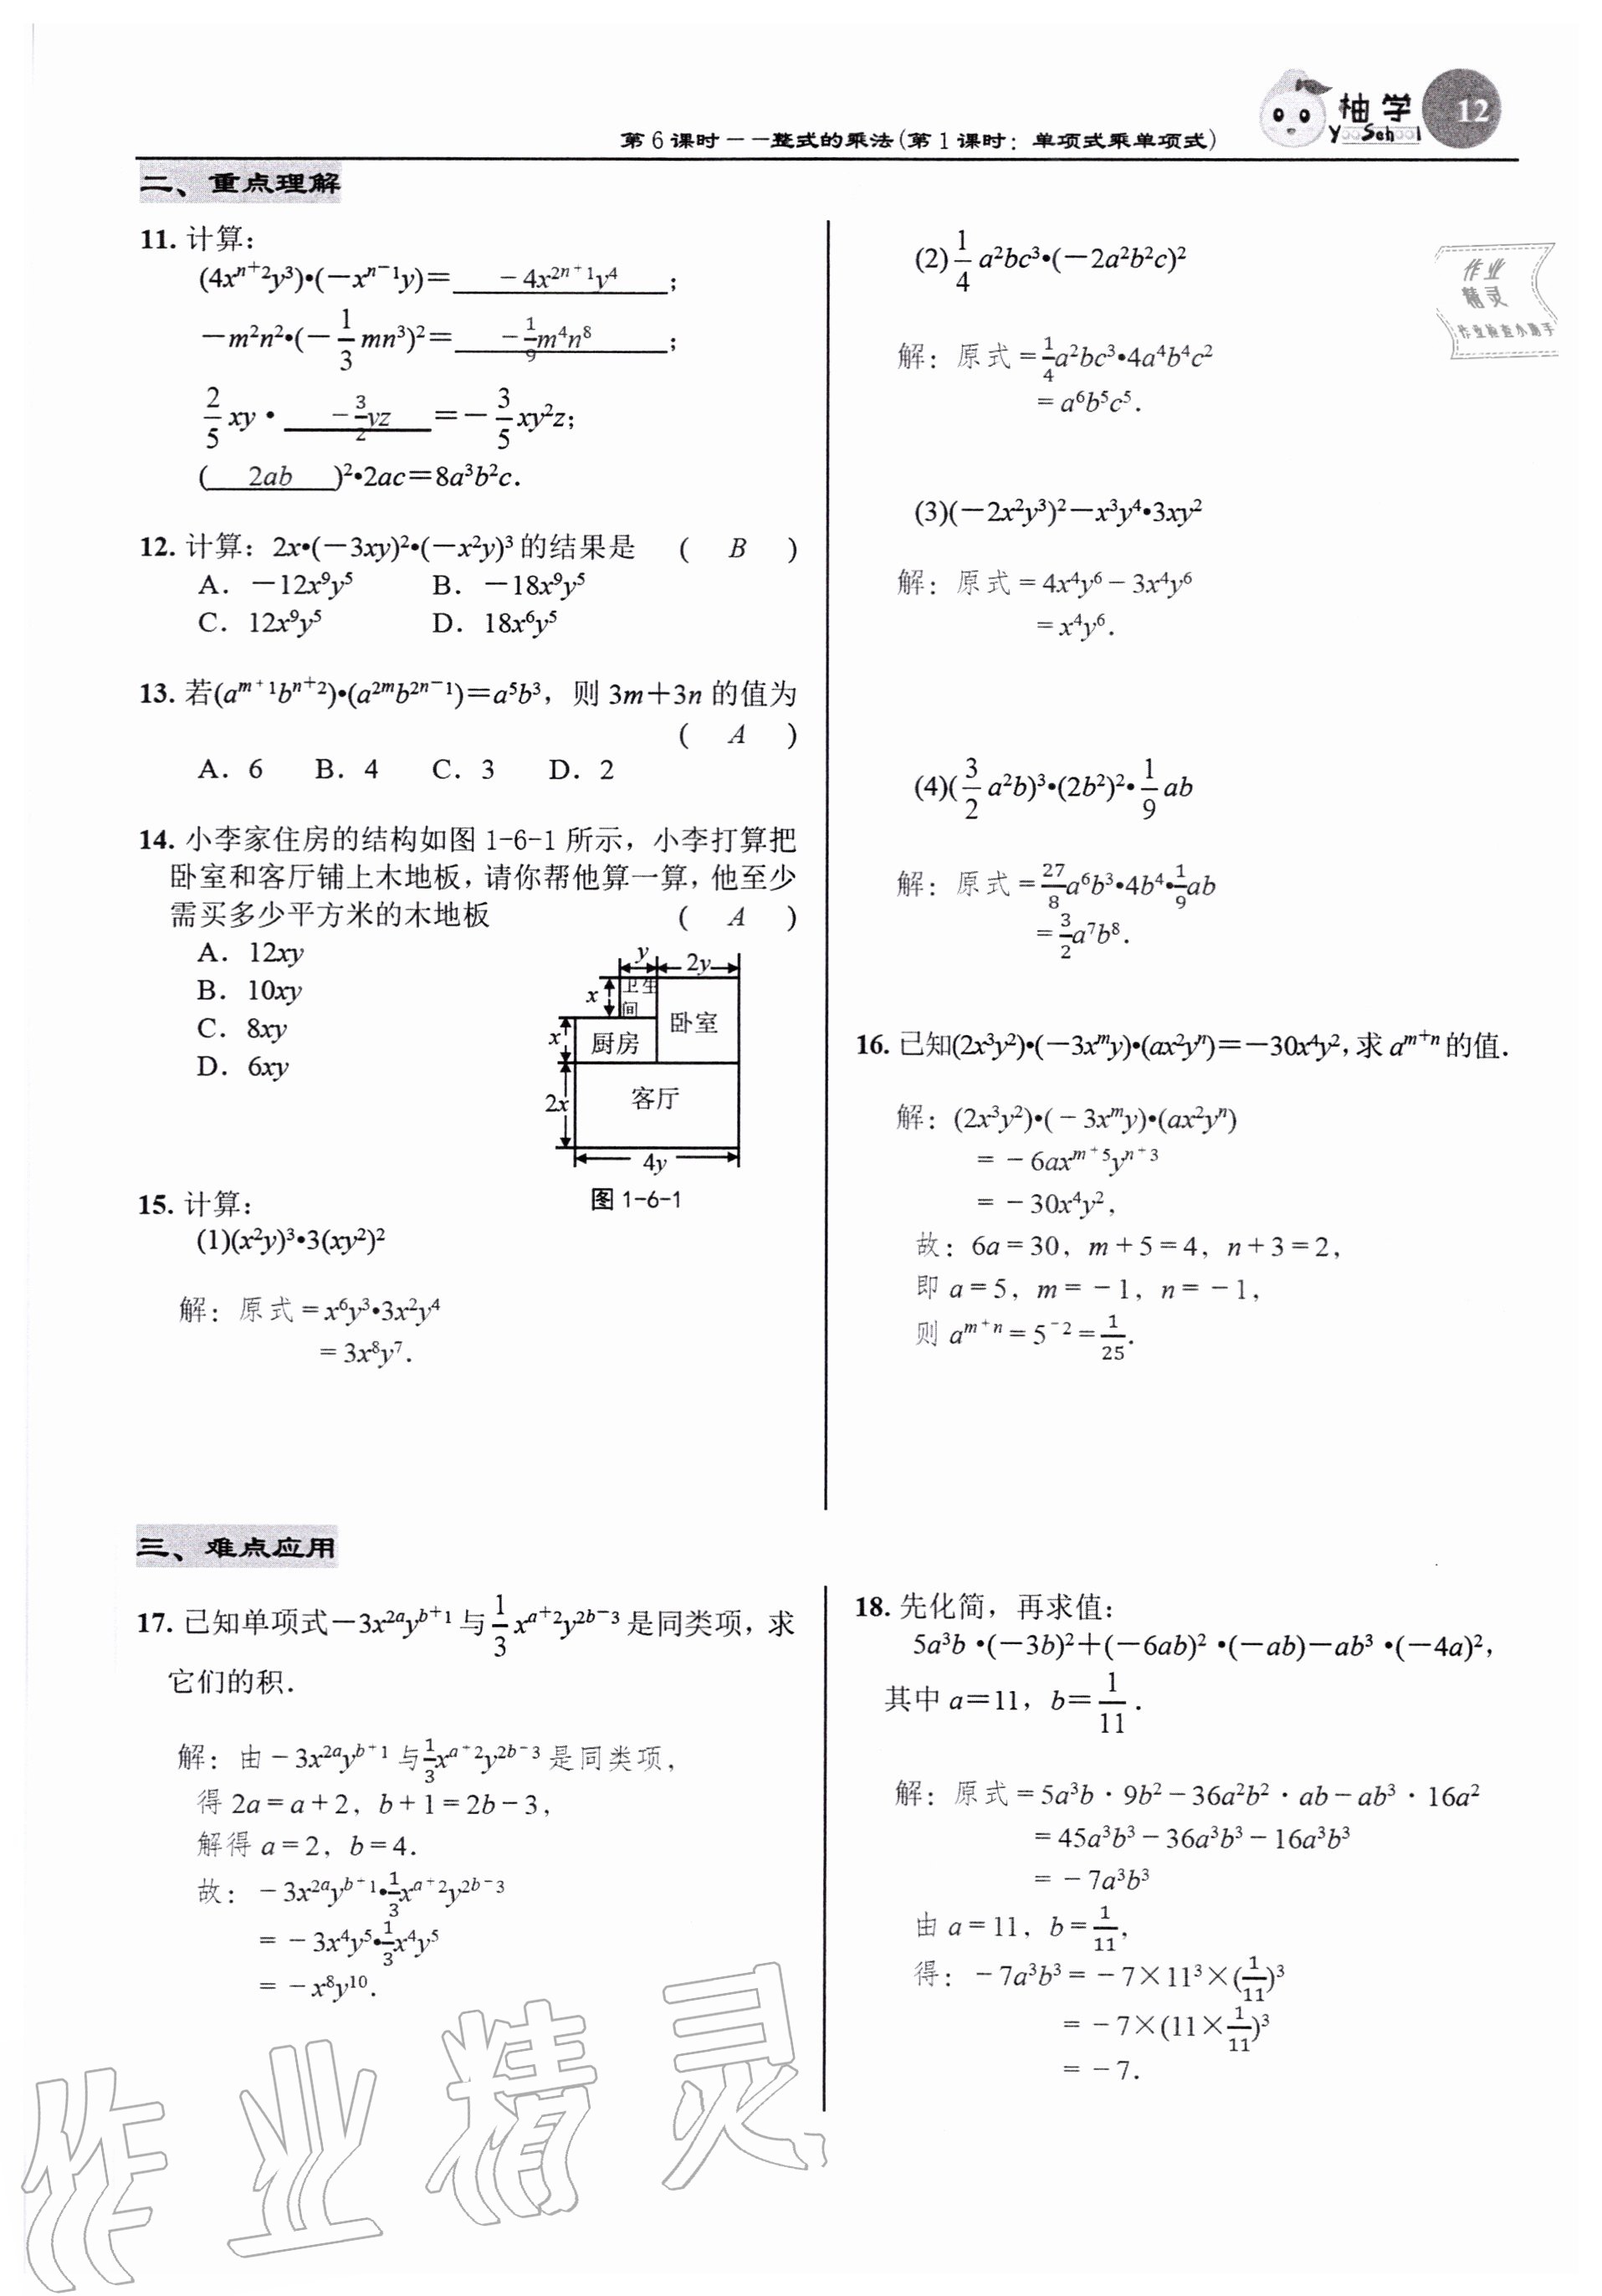 第6课时－－整式的乘法(第1课时：单项式乘单项式)
柚学
YooSchool
12
二、重点理解
11. 计算：
(4xⁿ⁺²y³)•(－xⁿ⁻¹y)＝ －4x²ⁿ⁺¹y⁴ ；
－m²n²•(－1/3 mn³)²＝ －1/9 m⁴n⁸ ；
2/5 xy • －3/2 yz ＝－3/5 xy²z；
( 2ab )²•2ac＝8a³b²c．
12. 计算：2x•(－3xy)²•(－x²y)³的结果是 ( B )
A．－12x⁹y⁵ B．－18x⁹y⁵
C．12x⁹y⁵ D．18x⁶y⁵
13. 若(aᵐ⁺¹bⁿ⁺²)•(a²ᵐb²ⁿ⁻¹)＝a⁵b³，则3m＋3n的值为
( A )
A．6 B．4 C．3 D．2
14. 小李家住房的结构如图1-6-1所示，小李打算把
卧室和客厅铺上木地板，请你帮他算一算，他至少
需买多少平方米的木地板 ( A )
A．12xy
B．10xy
C．8xy
D．6xy
y 2y
x 卫生
间
卧室
x 厨房
2x 客厅
4y
图1-6-1
15. 计算：
(1)(x²y)³•3(xy²)²
解：原式＝x⁶y³•3x²y⁴
＝3x⁸y⁷．
(2)1/4 a²bc³•(－2a²b²c)²
解：原式＝1/4 a²bc³•4a⁴b⁴c²
＝a⁶b⁵c⁵．
(3)(－2x²y³)²－x³y⁴•3xy²
解：原式＝4x⁴y⁶－3x⁴y⁶
＝x⁴y⁶．
(4)(3/2 a²b)³•(2b²)²•1/9 ab
解：原式＝27/8 a⁶b³•4b⁴•1/9 ab
＝3/2 a⁷b⁸．
16. 已知(2x³y²)•(－3xᵐy)•(ax²yⁿ)＝－30x⁴y²，求aᵐ⁺ⁿ的值．
解：(2x³y²)•(－3xᵐy)•(ax²yⁿ)
＝－6axᵐ⁺⁵yⁿ⁺³
＝－30x⁴y²，
故：6a＝30，m＋5＝4，n＋3＝2，
即a＝5，m＝－1，n＝－1，
则aᵐ⁺ⁿ＝5⁻²＝1/25．
作业
精灵
作业检查小助手
三、难点应用
17. 已知单项式－3x²ᵃyᵇ⁺¹与1/3 xᵃ⁺²y²ᵇ⁻³是同类项，求
它们的积．
解：由－3x²ᵃyᵇ⁺¹与1/3 xᵃ⁺²y²ᵇ⁻³是同类项，
得2a＝a＋2，b＋1＝2b－3，
解得a＝2，b＝4．
故：－3x²ᵃyᵇ⁺¹•1/3 xᵃ⁺²y²ᵇ⁻³
＝－3x⁴y⁵•1/3 x⁴y⁵
＝－x⁸y¹⁰．
18. 先化简，再求值：
5a³b •(－3b)²＋(－6ab)² •(－ab)－ab³ •(－4a)²，
其中a＝11，b＝1/11．
解：原式＝5a³b • 9b²－36a²b² • ab－ab³ • 16a²
＝45a³b³－36a³b³－16a³b³
＝－7a³b³
由a＝11，b＝1/11，
得：－7a³b³＝－7×11³×(1/11)³
＝－7×(11×1/11)³
＝－7．
作业精灵